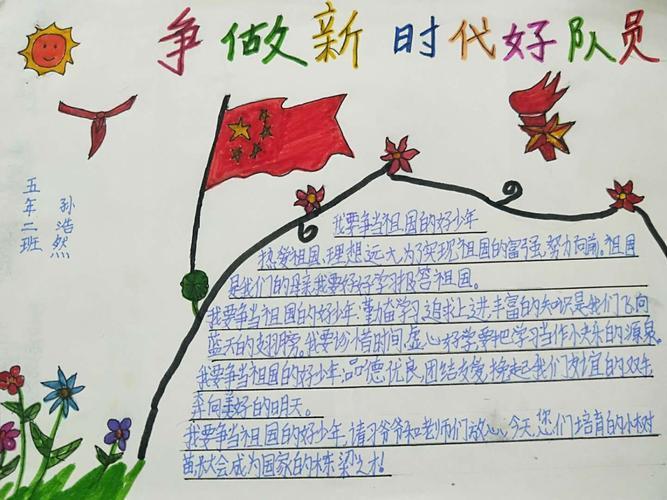 争做新时代好队员
五年二班
孙浩然
我要争当祖国的好少年
热爱祖国,理想远大,为了实现祖国的富强,努力向前。祖国
是我们的母亲我要好好学习报答祖国。
我要争当祖国的好少年,勤奋学习,追求上进,丰富的知识是我们飞向
蓝天的翅膀。我要珍惜时间,虚心好学,要把学习当作小快乐的源泉。
我要争当祖国的好少年,品德优良,团结友爱,挽起我们友谊的双手
奔向美好的明天。
我要争当祖国的好少年,请习爷爷和老师们放心,今天,您们培育的小树
苗长大会成为国家的栋梁之才!